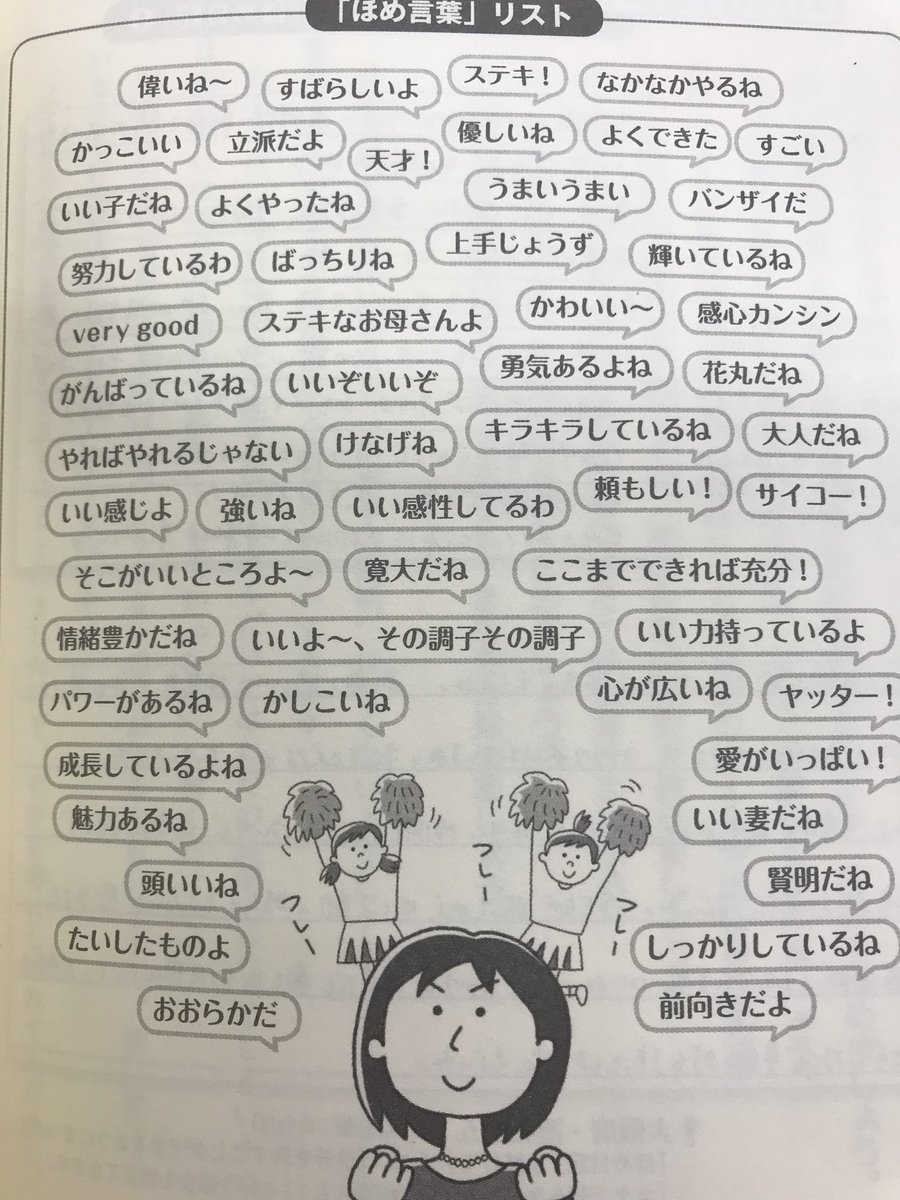 「ほめ言葉」リスト
偉いね～
すばらしいよ
ステキ！
なかなかやるね
かっこいい
立派だよ
天才！
優しいね
よくできた
すごい
いい子だね
よくやったね
うまいうまい
バンザイだ
努力しているわ
ばっちりね
上手じょうず
輝いているね
very good
ステキなお母さんよ
かわいい～
感心カンシン
がんばっているね
いいぞいいぞ
勇気あるよね
花丸だね
やればやれるじゃない
けなげね
キラキラしているね
大人だね
いい感じよ
強いね
いい感性してるわ
頼もしい！
サイコー！
そこがいいところよ～
寛大だね
ここまでできれば充分！
情緒豊かだね
いいよ～、その調子その調子
いい力持っているよ
パワーがあるね
かしこいね
心が広いね
ヤッター！
成長しているよね
愛がいっぱい！
魅力あるね
いい妻だね
頭いいね
賢明だね
フレー
フレー
フレー
たいしたものよ
しっかりしているね
おおらかだ
前向きだよ